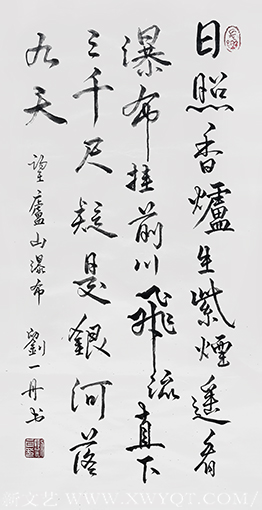 日照香爐生紫煙遙看
瀑布挂前川飛流直下
三千尺疑是銀河落
九天
望廬山瀑布 劉一丹书
新文艺 - WWW.XWYQT.COM/